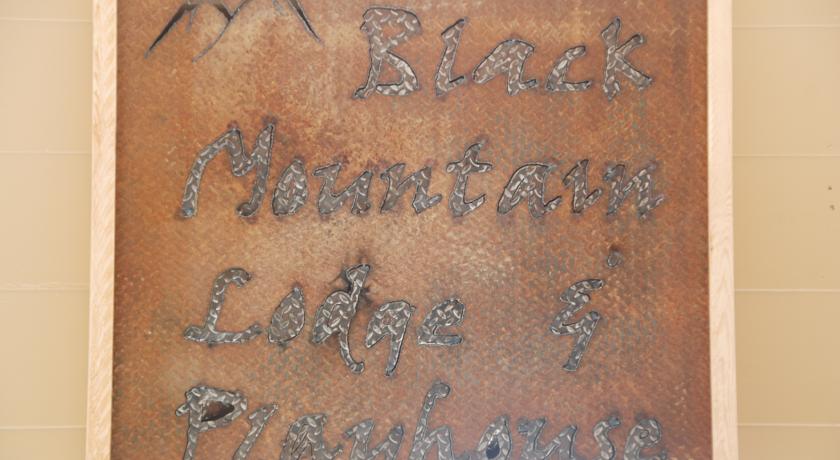 Black
Mountain
Lodge &
Playhouse